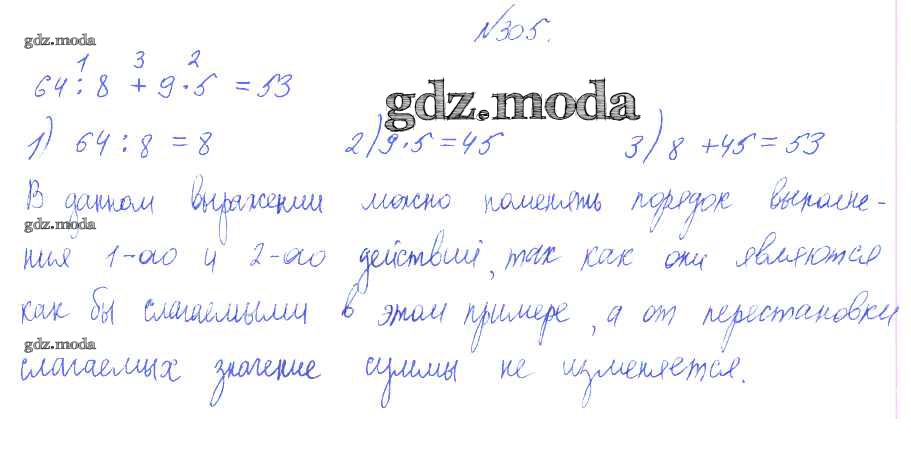 №305.
gdz.moda
1 3 2
64 : 8 + 9 · 5 = 53
gdz.moda
1) 64 : 8 = 8 2) 9 · 5 = 45 3) 8 + 45 = 53
В данном выражении можно поменять порядок выполне-
gdz.moda
ния 1-ого и 2-ого действий, так как они являются
как бы слагаемыми в этом примере, а от перестановки
gdz.moda
слагаемых значение суммы не изменяется.